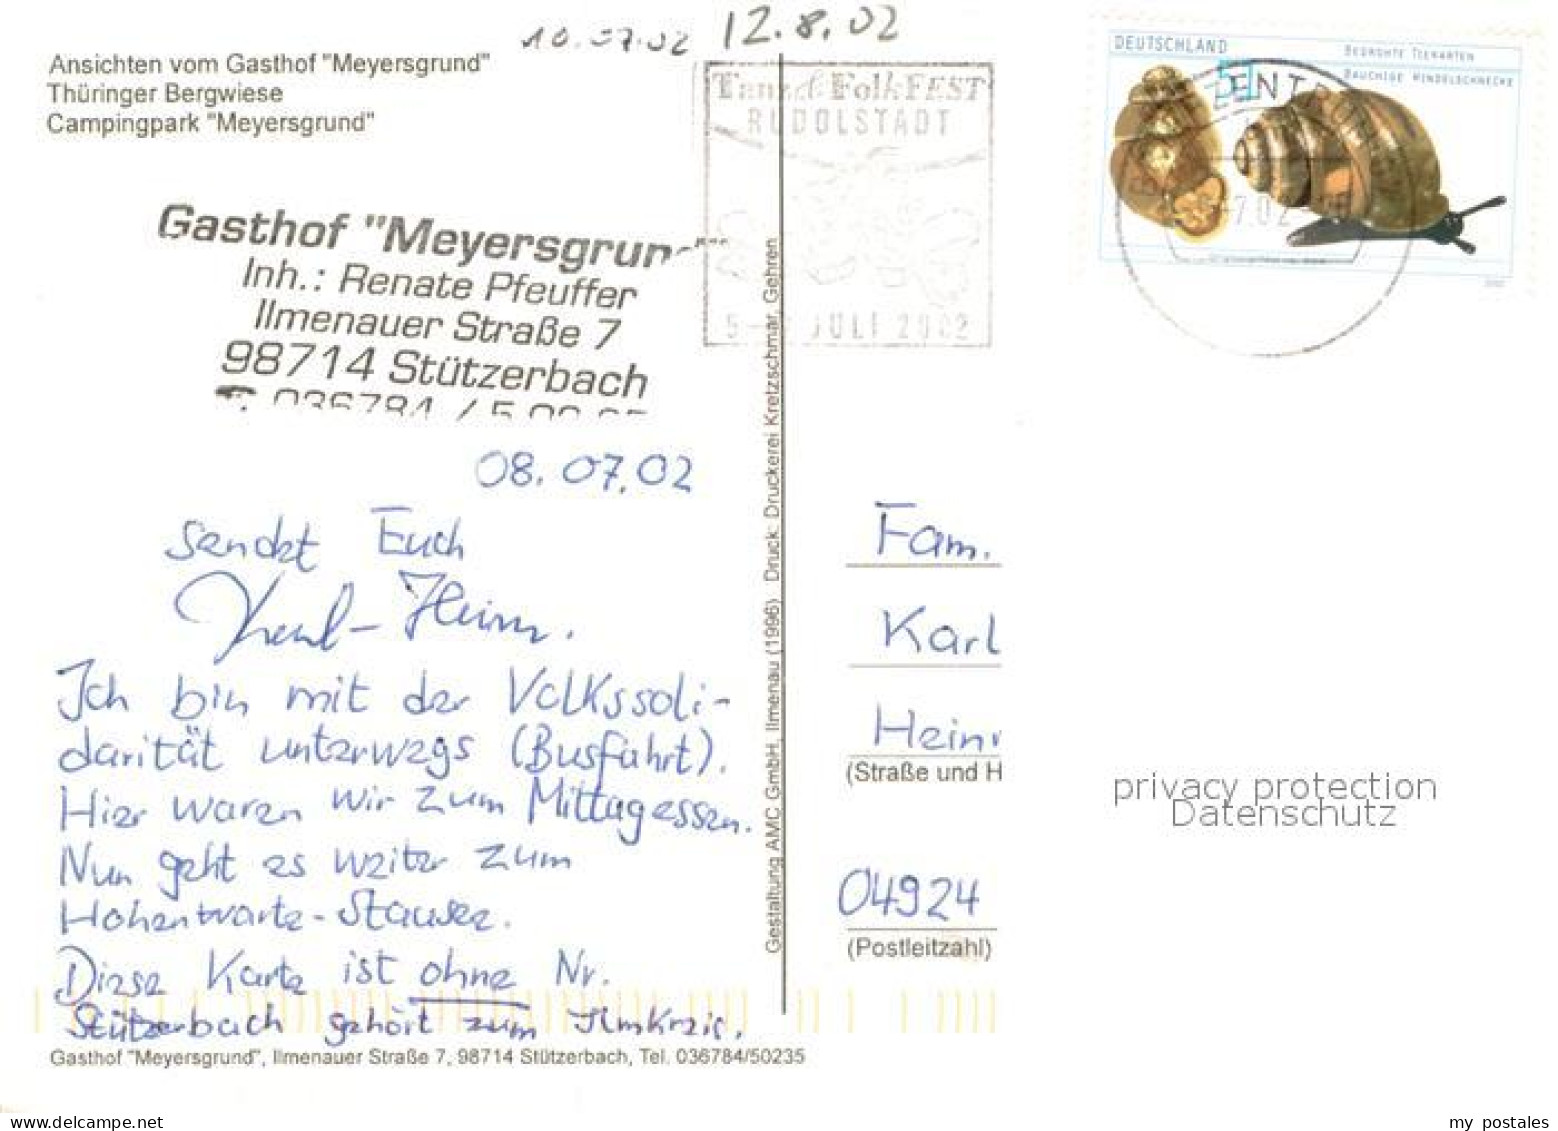 10.07.02 12.8.02
Ansichten vom Gasthof "Meyersgrund"
Thüringer Bergwiese
Campingpark "Meyersgrund"
Tanz & FolkFEST
RUDOLSTADT
5 - 7 JULI 2002
DEUTSCHLAND
51
BEDROHTE TIERARTEN
BAUCHIGE WINDELSCHNECKE
BRIEFZENTRUM
7.02
Gasthof "Meyersgrund"
Inh.: Renate Pfeuffer
Ilmenauer Straße 7
98714 Stützerbach
036784 / 5 02 35
08.07.02
sendet Euch
Karl-Heinz.
Ich bin mit der Volkssoli-
darität unterwegs (Busfahrt).
Hier waren wir zum Mittagessen.
Nun geht es weiter zum
Hohenwarte-Stausee.
Diese Karte ist ohne Nr.
Stützerbach gehört zum Ilmkreis.
Gasthof "Meyersgrund", Ilmenauer Straße 7, 98714 Stützerbach, Tel. 036784/50235
Gestaltung AMC GmbH, Ilmenau (1996) Druck: Druckerei Kretzschmar, Gehren
Fam.
Karl
Hein
(Straße und H
04924
(Postleitzahl)
privacy protection
Datenschutz
www.delcampe.net
my postales